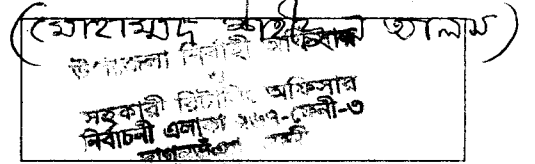 (মোহাম্মদ আলম)
উপজেলা নির্বাহী অফিসার
ও
সহকারী রিটার্নিং অফিসার
নির্বাচনী এলাকা ২৬৭-ফেনী-৩
ফেনী